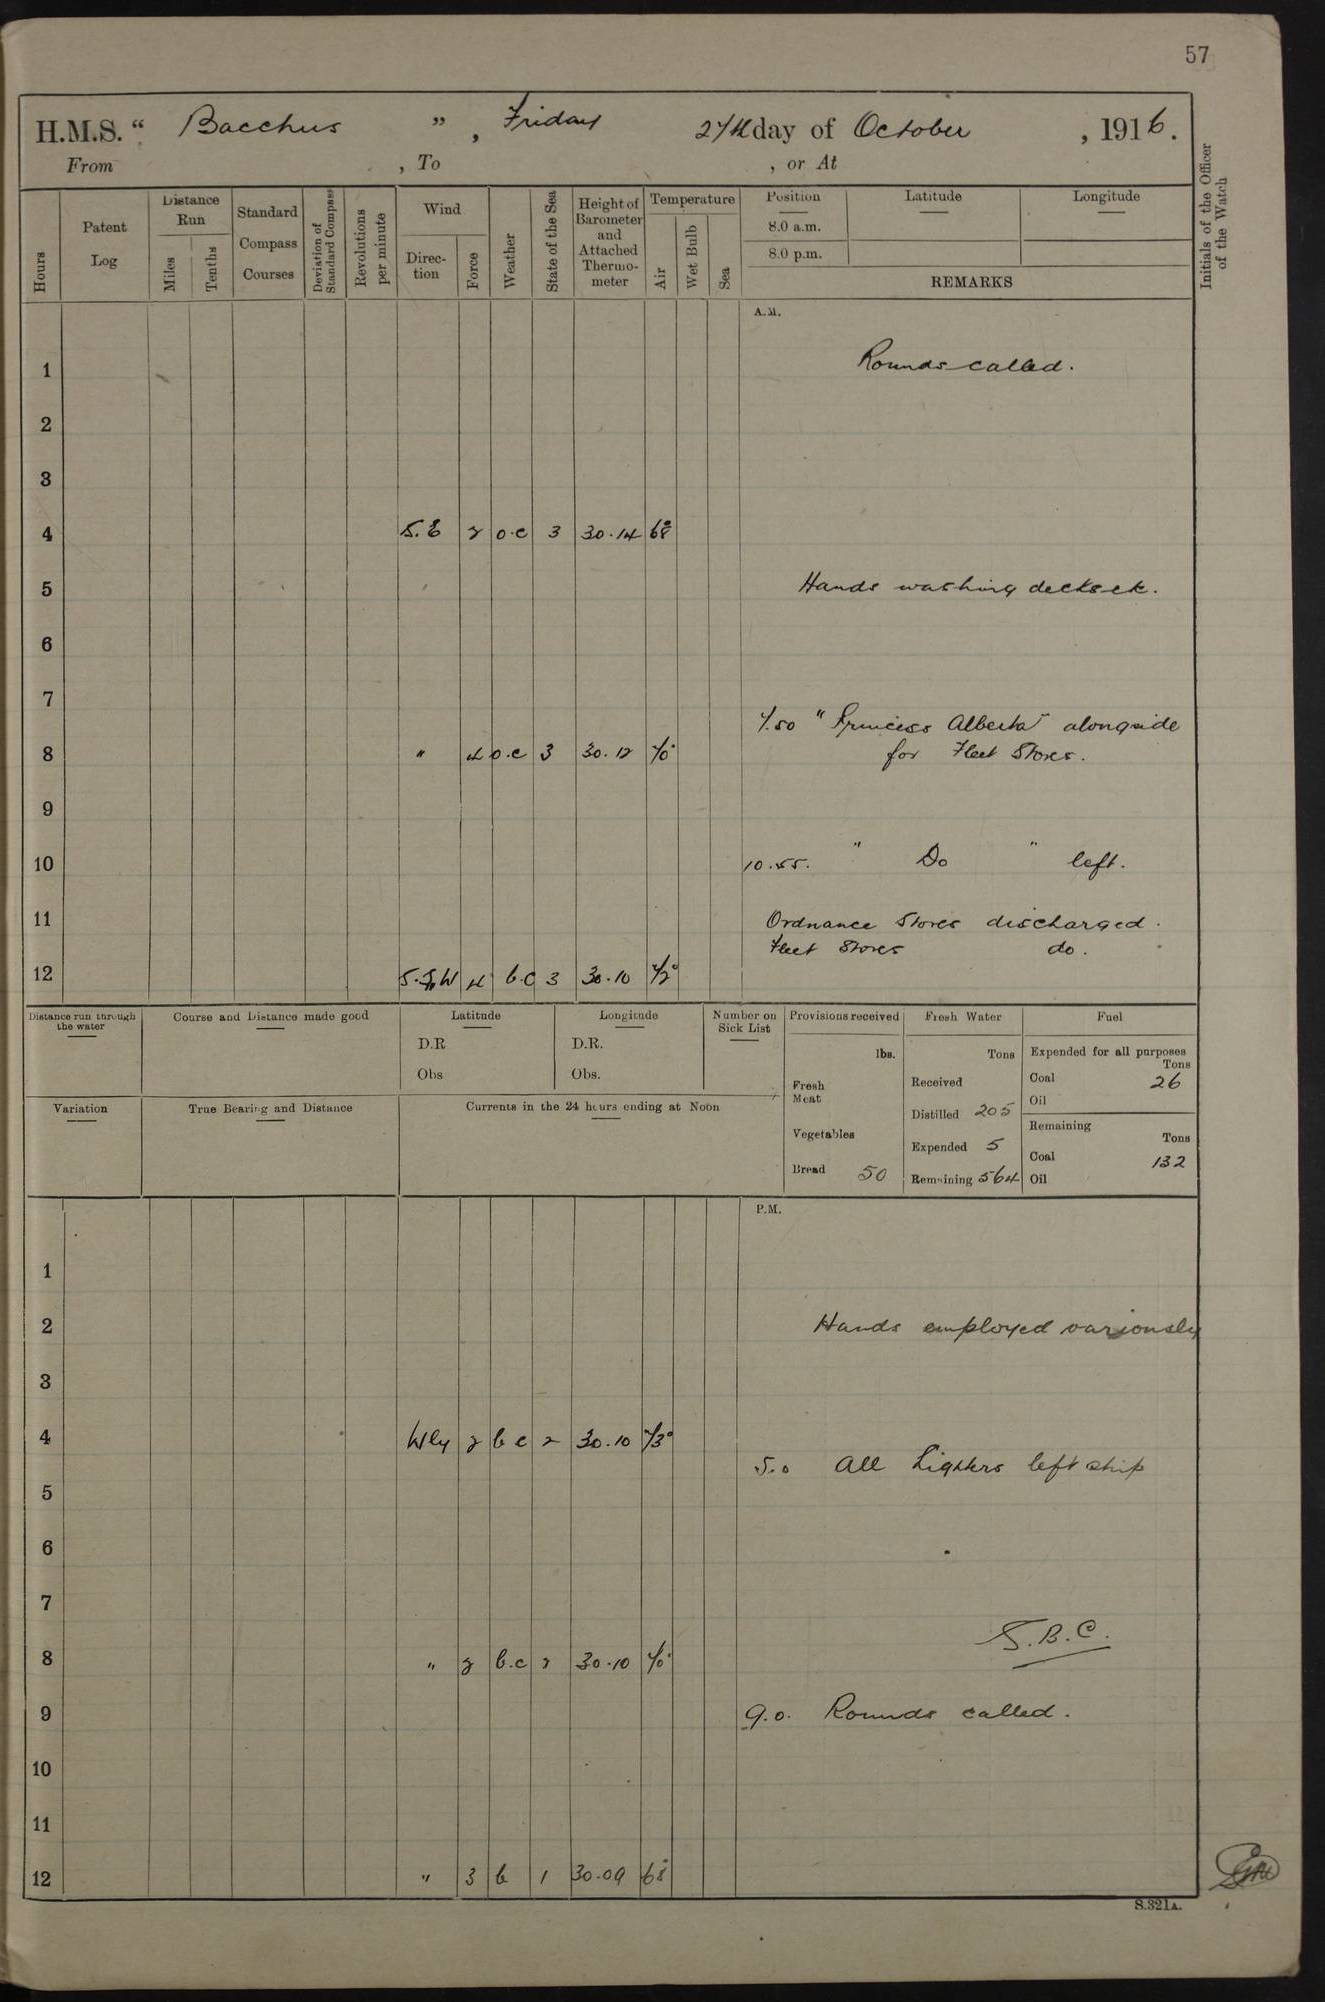 57
H.M.S. " Bacchus ", Friday 27th day of October, 1916.
From , To , or At
Initials of the Officer of the Watch
Hours
Patent Log
Distance Run
Miles
Tenths
Standard Compass Courses
Deviation of Standard Compass
Revolutions per minute
Wind
Direction
Force
Weather
State of the Sea
Height of Barometer and Attached Thermometer
Temperature
Air
Wet Bulb
Sea
Position
8.0 a.m.
8.0 p.m.
Latitude
Longitude
REMARKS
A.M.
1 Rounds called.
2
3
4 S.E 2 o.c 3 30.14 68°
5 Hands washing decks etc.
6
7
7.50 "Princess Alberta" alongside
8 " 4 o.c 3 30.12 70° for Fleet Stores.
9
10 10.55. " Do " left.
11 Ordnance Stores discharged.
Fleet Stores do.
12 4 b.c 3 30.10 72°
Distance run through the water
Course and Distance made good
Latitude
D.R
Obs
Longitude
D.R.
Obs.
Number on Sick List
Provisions received
lbs.
Fresh Meat
Vegetables
Bread 50
Fresh Water
Tons
Received
Distilled 205
Expended 5
Remaining 564
Fuel
Expended for all purposes
Tons
Coal 26
Oil
Remaining
Tons
Coal 132
Oil
Variation
True Bearing and Distance
Currents in the 24 hours ending at Noon
P.M.
1
2 Hands employed variously
3
4 Wly 2 b c 2 30.10 73°
5.0 All Lighters left ship
5
6
7
S.B.C.
8 " 2 b.c 2 30.10 70°
9 9.0. Rounds called.
10
11
12 " 3 b 1 30.09 68°
S.321A.